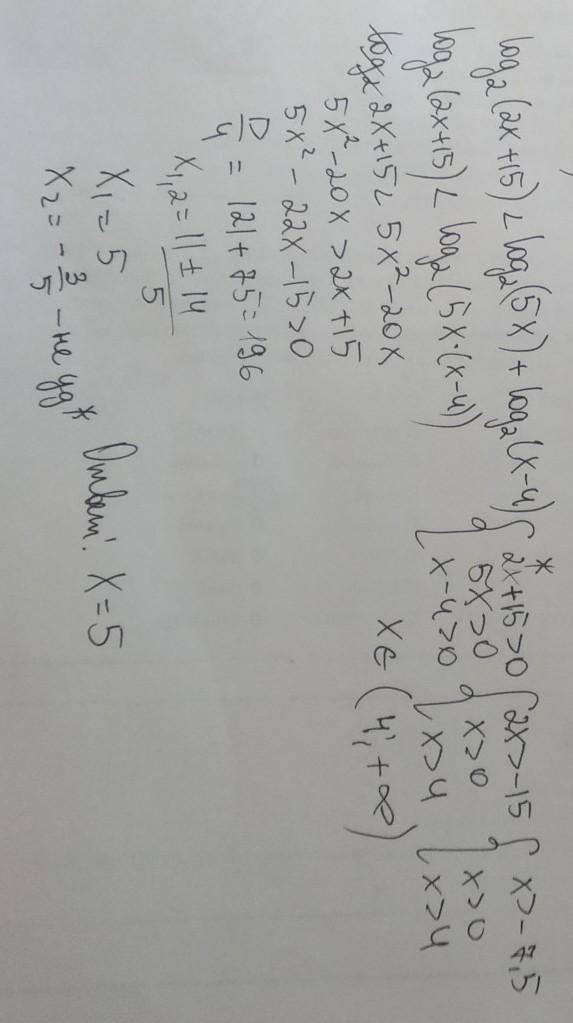 log₂(2x+15) < log₂(5x) + log₂(x-4)
log₂(2x+15) < log₂(5x·(x-4))
2x+15 < 5x²-20x
5x²-20x > 2x+15
5x²-22x-15>0
D/4 = 121+75=196
x₁,₂ = (11±14)/5
x₁ = 5
x₂ = -3/5 - не уд*
Ответ: x=5
*
{ 2x+15>0 { 2x>-15 { x>-7,5
{ 5x>0 { x>0 { x>0
{ x-4>0 { x>4 { x>4
x∈(4; +∞)